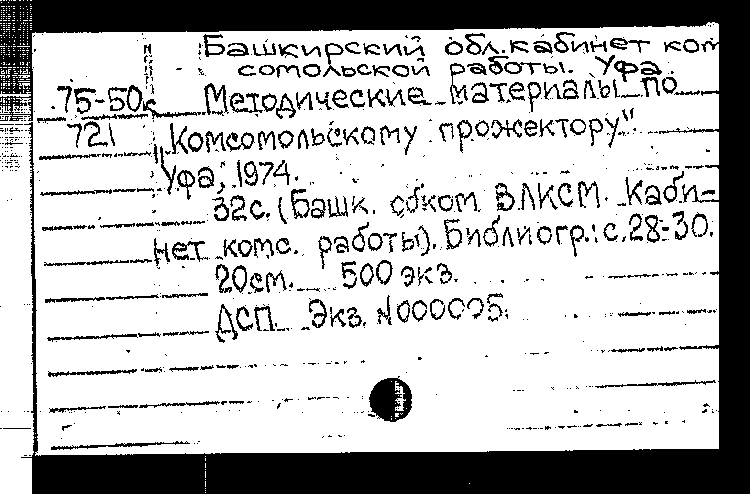 Башкирский обл. кабинет ком
сомольской работы. Уфа.
75-50к Методические материалы по
721 „Комсомольскому прожектору"
Уфа, 1974.
32с. (Башк. обком ВЛКСМ. Каби-
нет комс. работы). Библиогр.: с. 28-30.
20см. 500 экз.
ДСП. Экз. N000005.